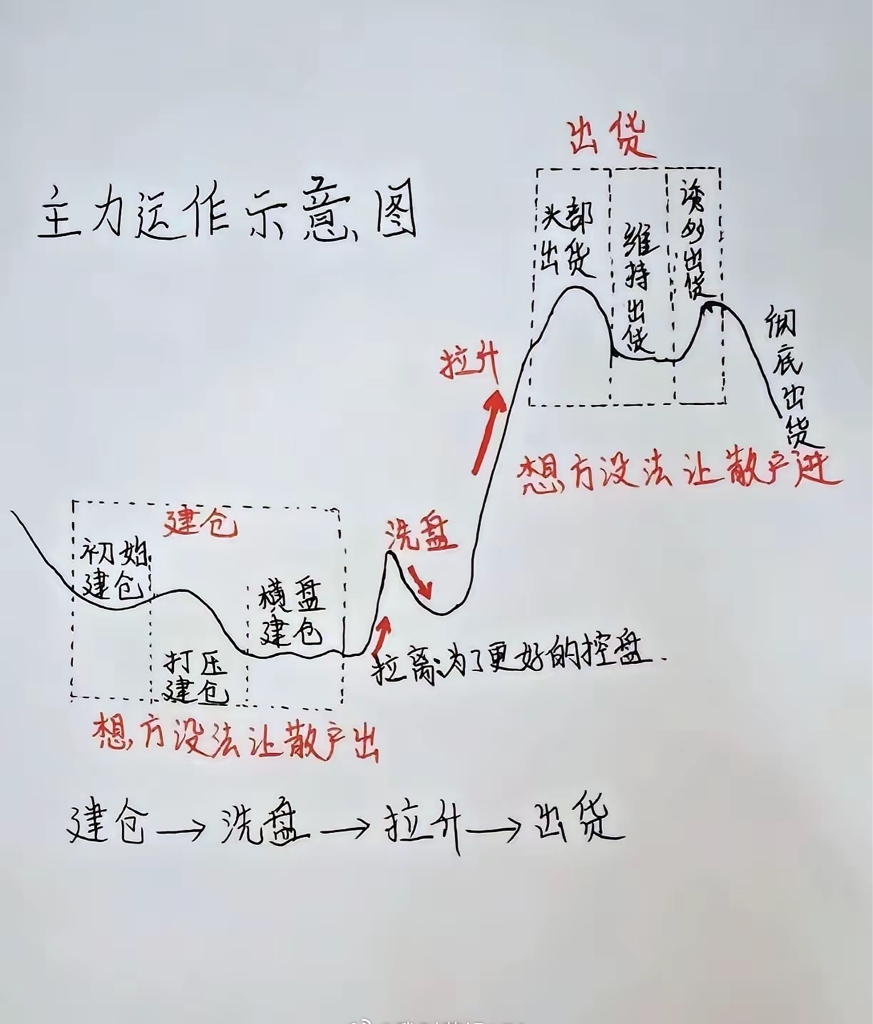 出货
主力运作示意图
头部
出货
维持出货
诱多出货
彻底出货
拉升
想方设法让散户进
建仓
初始
建仓
打压
建仓
横盘
建仓
洗盘
拉离:为了更好的控盘.
想方设法让散户出
建仓→洗盘→拉升→出货